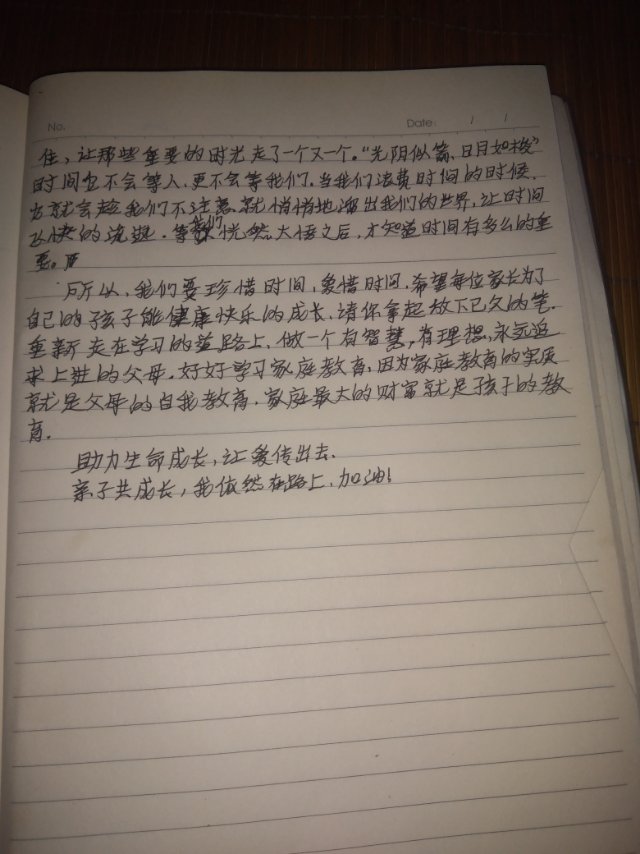 No.
Date: / /
住，让那些重要的时光走了一个又一个。“光阴似箭、日月如梭”
时间它不会等人，更不会等我们，当我们浪费时间的时候，
它就会趁我们不注意，就悄悄地溜出我们的世界，让时间
飞快的流逝。等我们恍然大悟之后，才知道时间有多么的重
要。
所以，我们要珍惜时间，爱惜时间，希望每位家长为了
自己的孩子能健康快乐的成长，请你拿起放下已久的笔，
重新走在学习的道路上，做一个有智慧，有理想，永远追
求上进的父母，好好学习家庭教育，因为家庭教育的实质
就是父母的自我教育，家庭最大的财富就是孩子的教
育。
助力生命成长，让爱传出去．
亲子共成长，我依然在路上，加油！